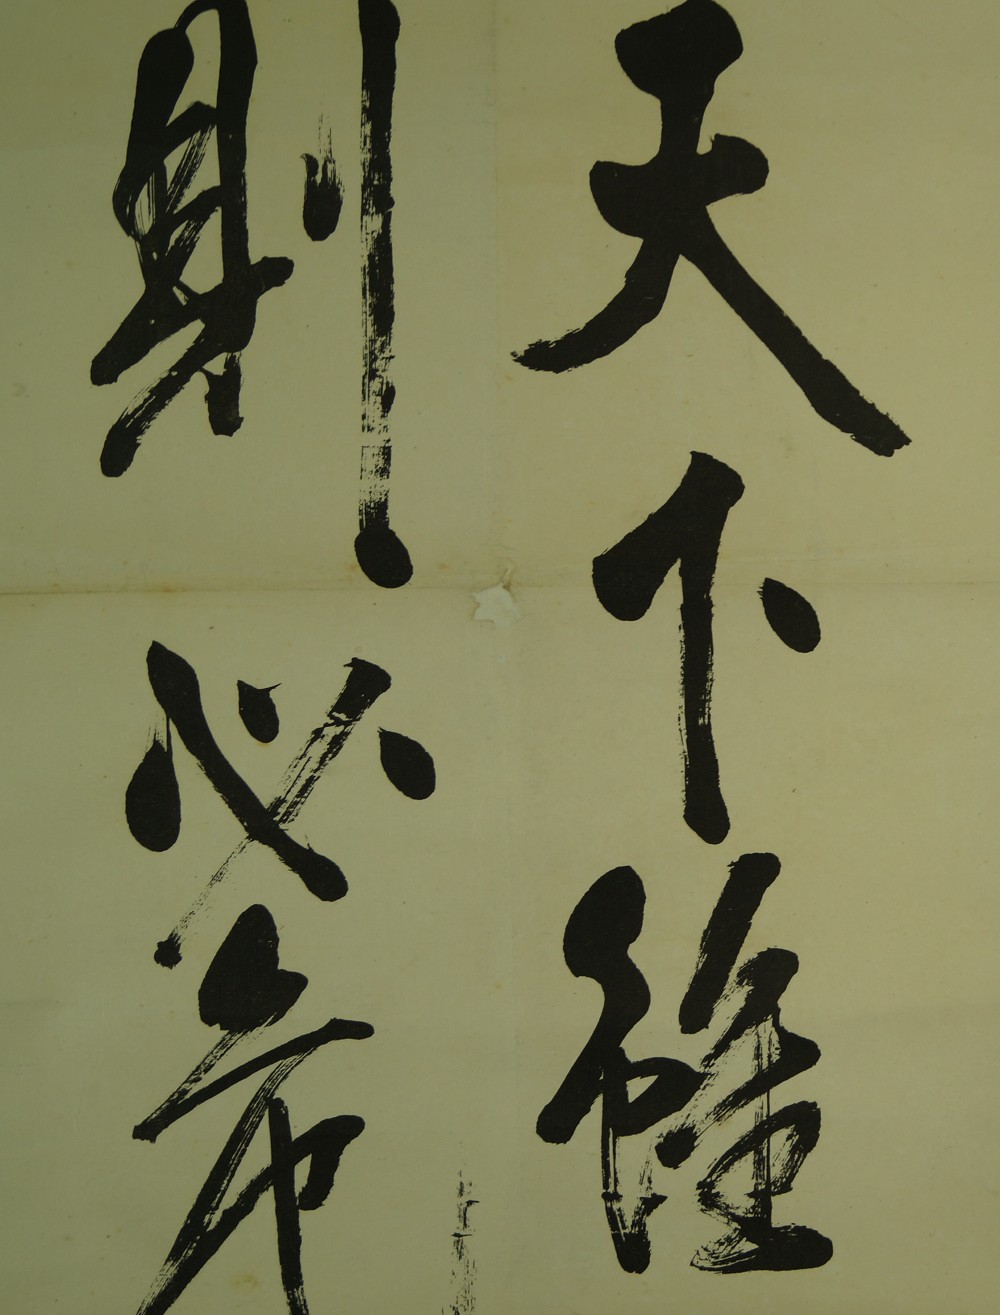 天下雖
則必希